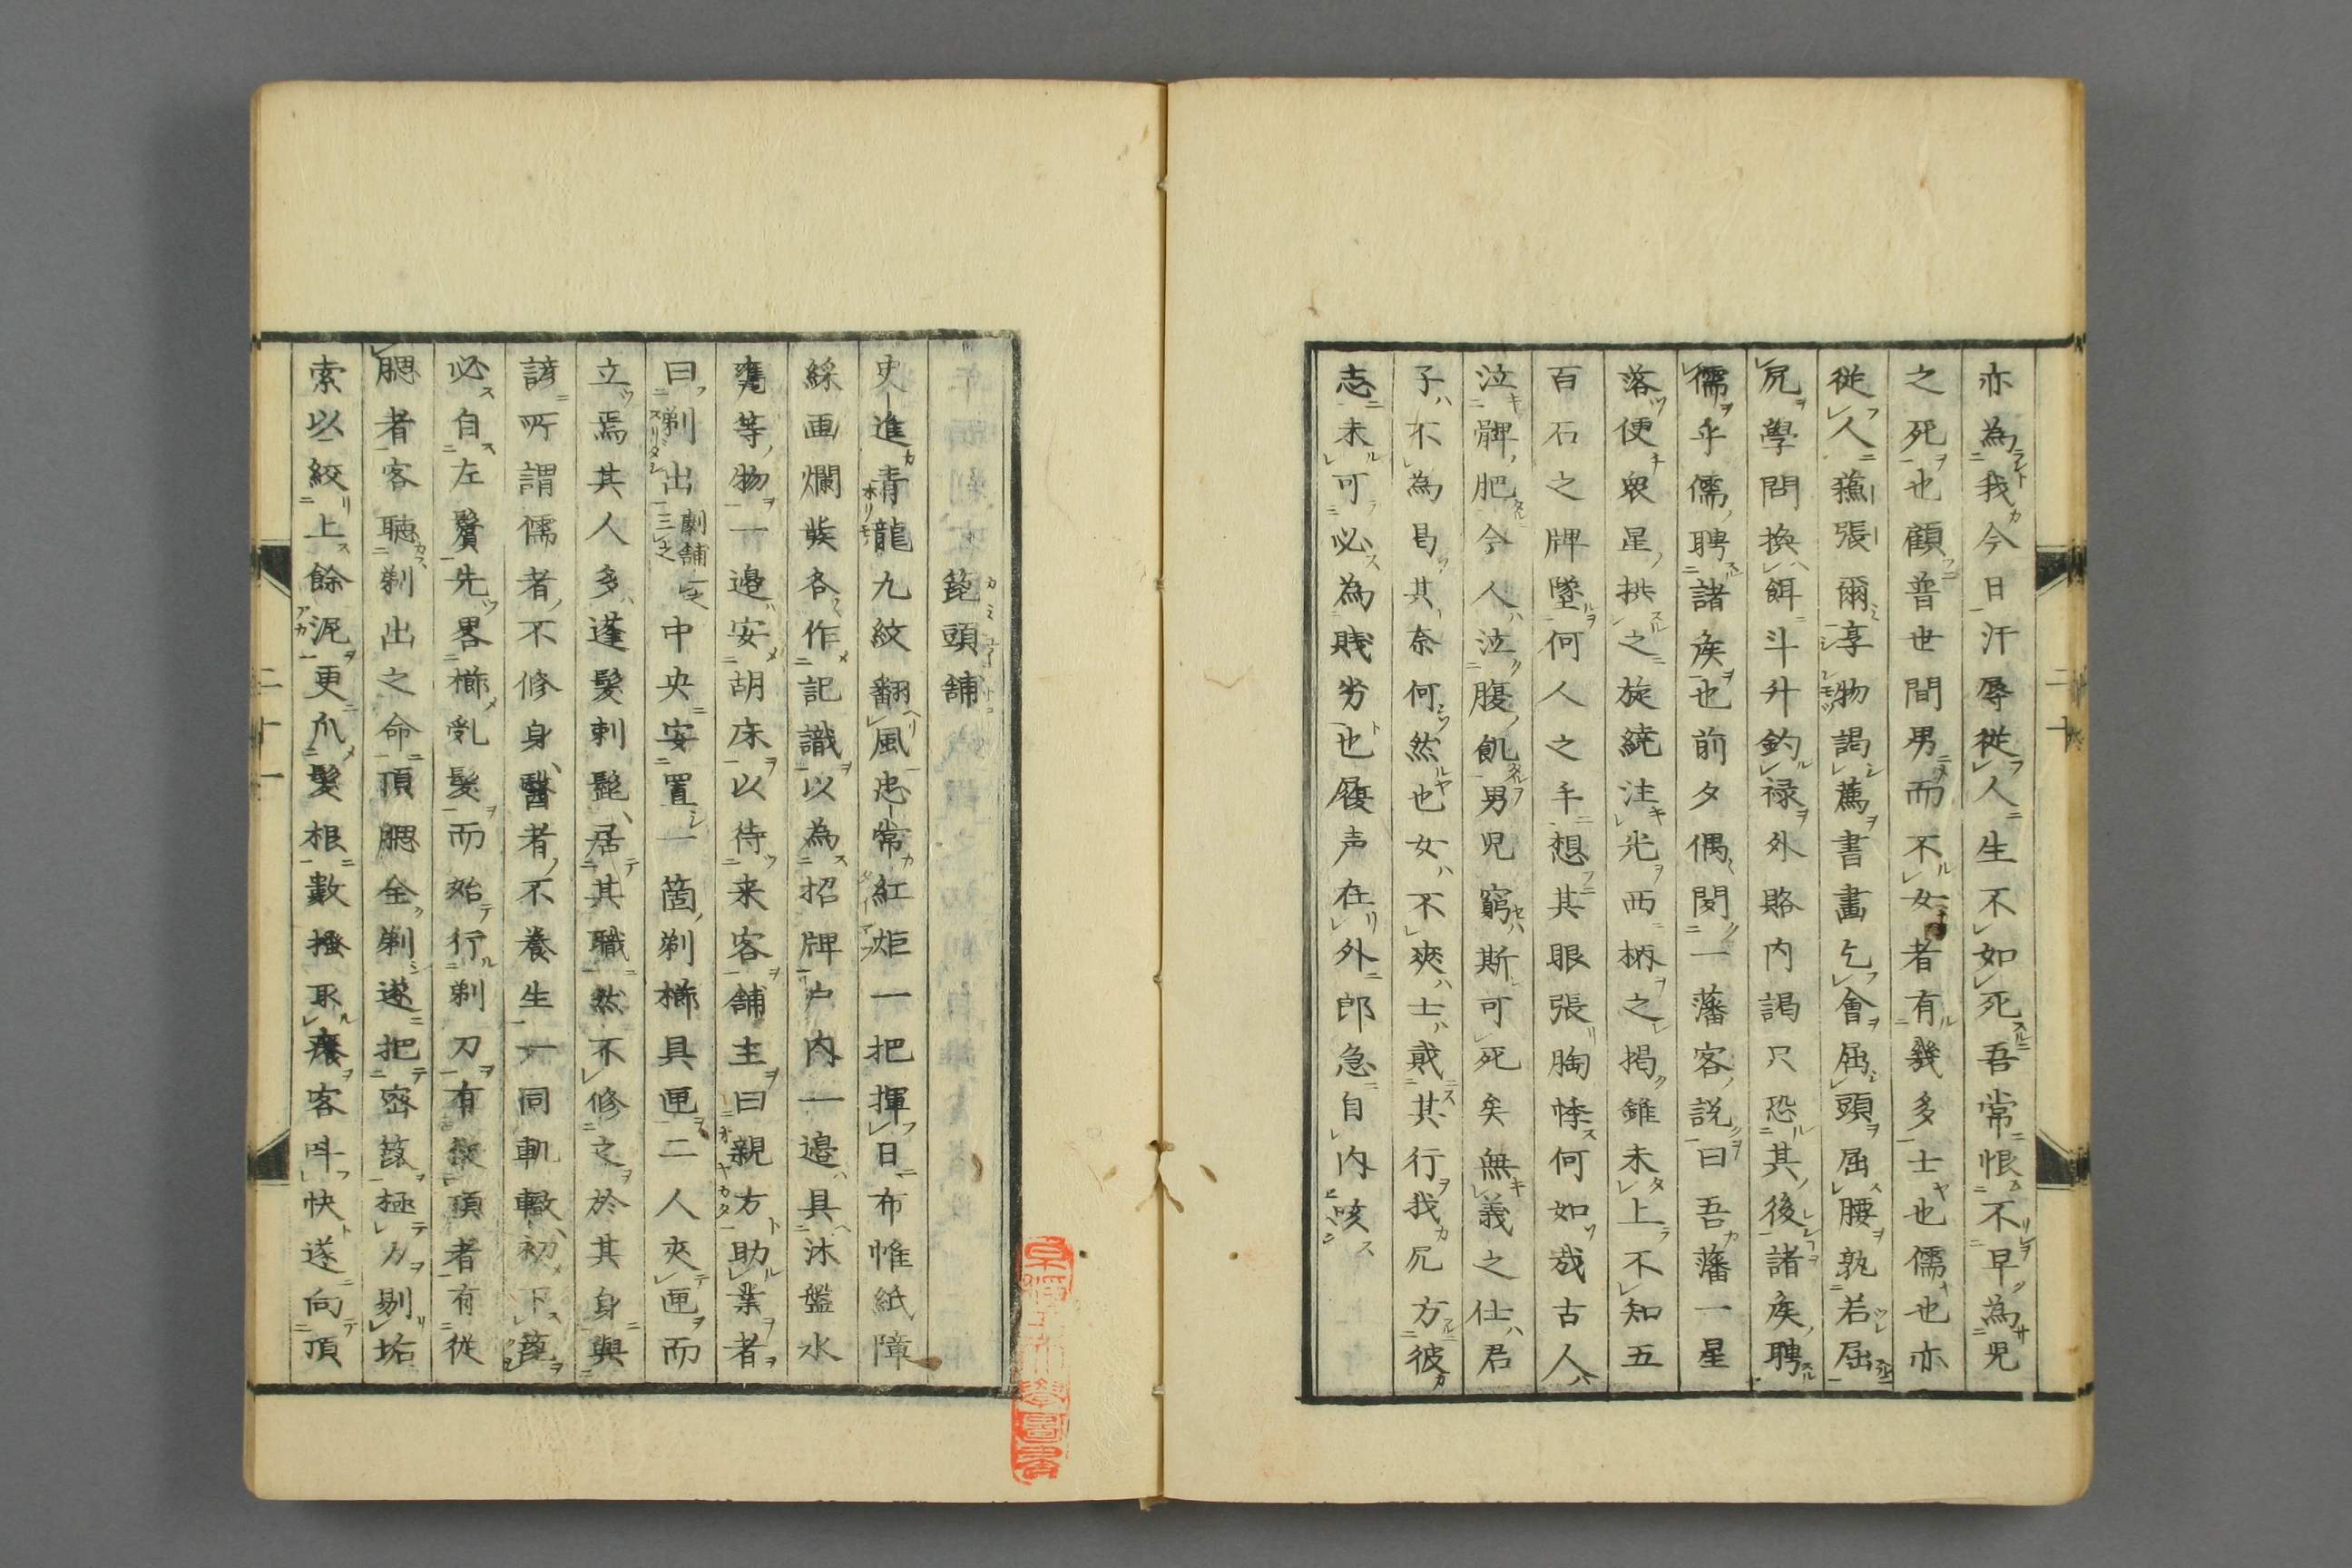 亦為我今日汗辱從人生不如死吾常恨不早為児
之死也顧普世間男而不女者有幾多士也儒也亦
從人鴟張爾享物謁薦書畫乞會屈頭屈腰孰若屈
尻學問換餌斗升釣禄外賂内謁只恐其後諸矦聘
儒乎儒聘諸矦也前夕偶聞一藩客説曰吾藩一星
落便衆星拱之旋繞注光西柄之掲錐未上不知五
百石之牌墜何人之手想其眼張胸悸何如哉古人
泣髀肥今人泣腹飢男児窮斯可死矣無義之仕君
子不為曷其奈何然也女不爽士貳其行我尻方彼
志未可必為賎劣也履声在外郎急自内咳
二十
篦頭舗
史進青龍九紋翻風忠常紅炬一把揮日布帷紙障
綵画爛裝各作記識以為招牌戸内一邉具沐盤水
甕等物一邉安胡床以待来客舗主曰親方助業者
曰剃出劇舗三之中央安置一箇剃櫛具匣二人夾匣而
立焉其人多蓬髮剌髭居其職然不修之於其身與
諺所謂儒者不修身醫者不養生一同軌轍初下篦
必自左鬢先畧櫛乱髮而始行剃刀有頂者有從
腮者客聴剃出之命頂腮全剃遂把密篦極力剔垢
索以絞上餘泥更爪髮根數搔取癢客叫快遂向頂
二十一